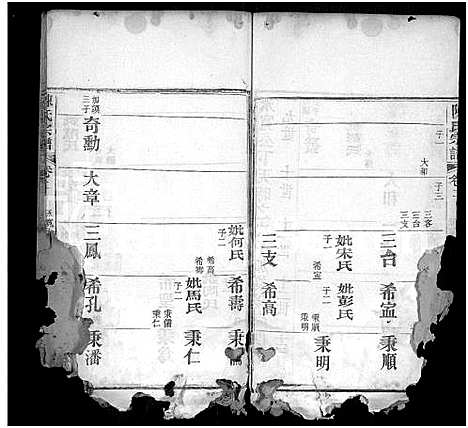 陳氏宗譜
卷
子一
大和
子三
三客
三台
三支
三台
希孟
秉順
妣宋氏
子一
希孟
妣彭氏
子二
秉順
秉明
秉明
三支
希高
妣何氏
子二
希高
希壽
希壽
妣馬氏
子二
秉儒
秉仁
秉仁
奇勳
三子
大章
三鳳
希孔
秉潘
陳氏宗譜